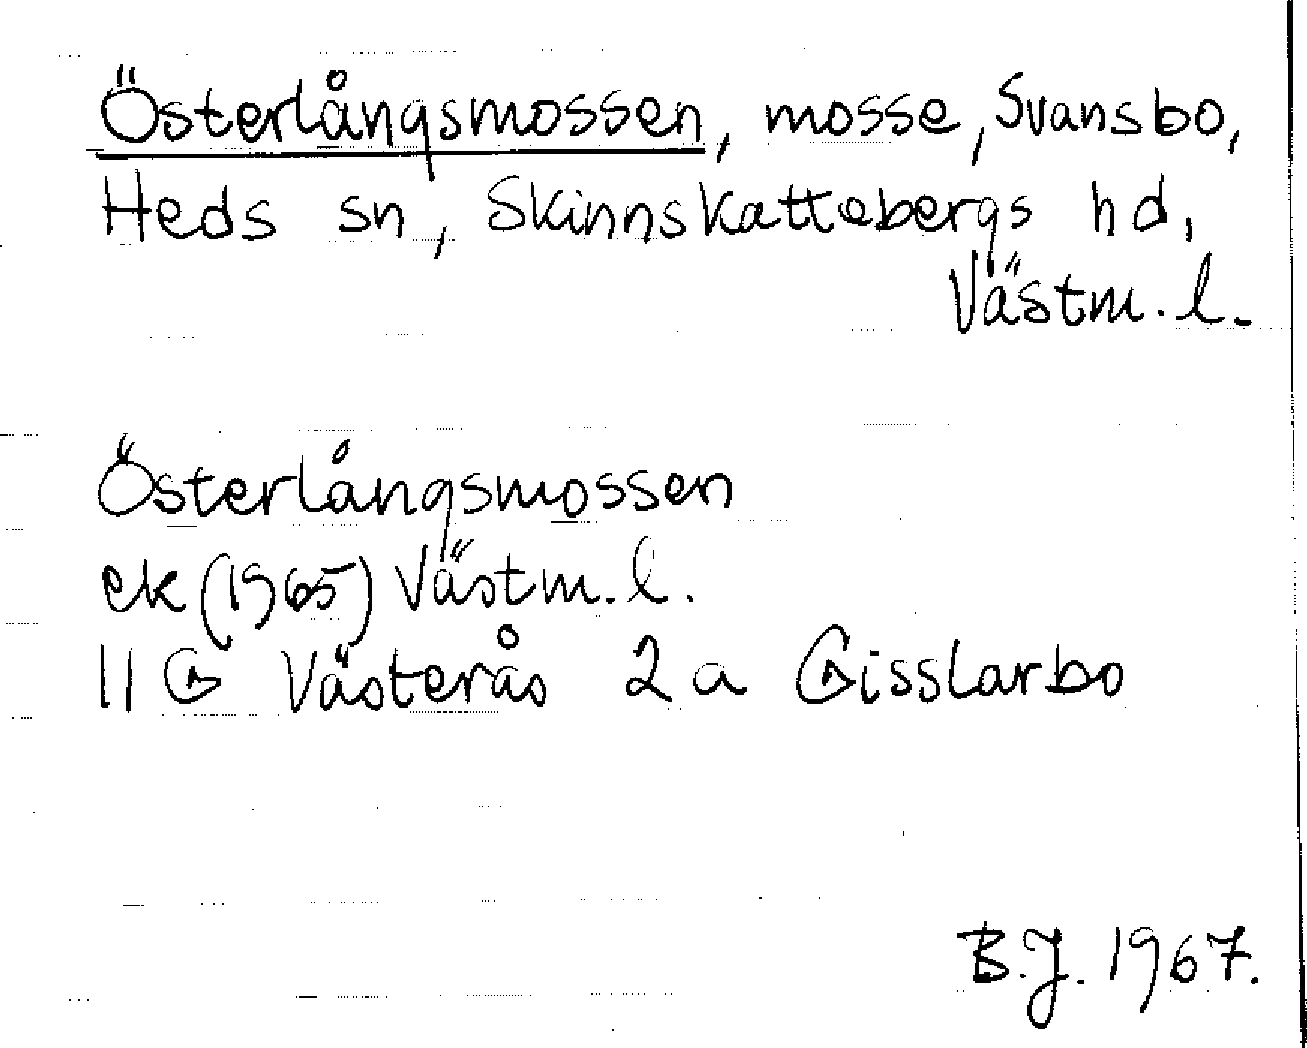 Österlångsmossen, mosse, Svansbo,
Heds sn, Skinnskattebergs hd,
Västm. l.
Österlångsmossen
ek (1965) Västm. l.
11 G Västerås 2 a Gisslarbo
B.J. 1967.